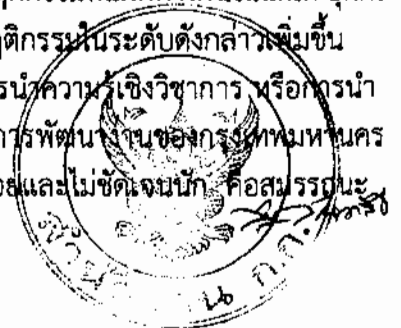 ติกรรมในระดับดังกล่าวเพิ่มขึ้น
รนำความรู้เชิงวิชาการ หรือการนำ
การพัฒนางานของกรุงเทพมหานคร
และไม่ชัดเจนนัก คือสมรรถนะ
สำนักงาน ก.ก.